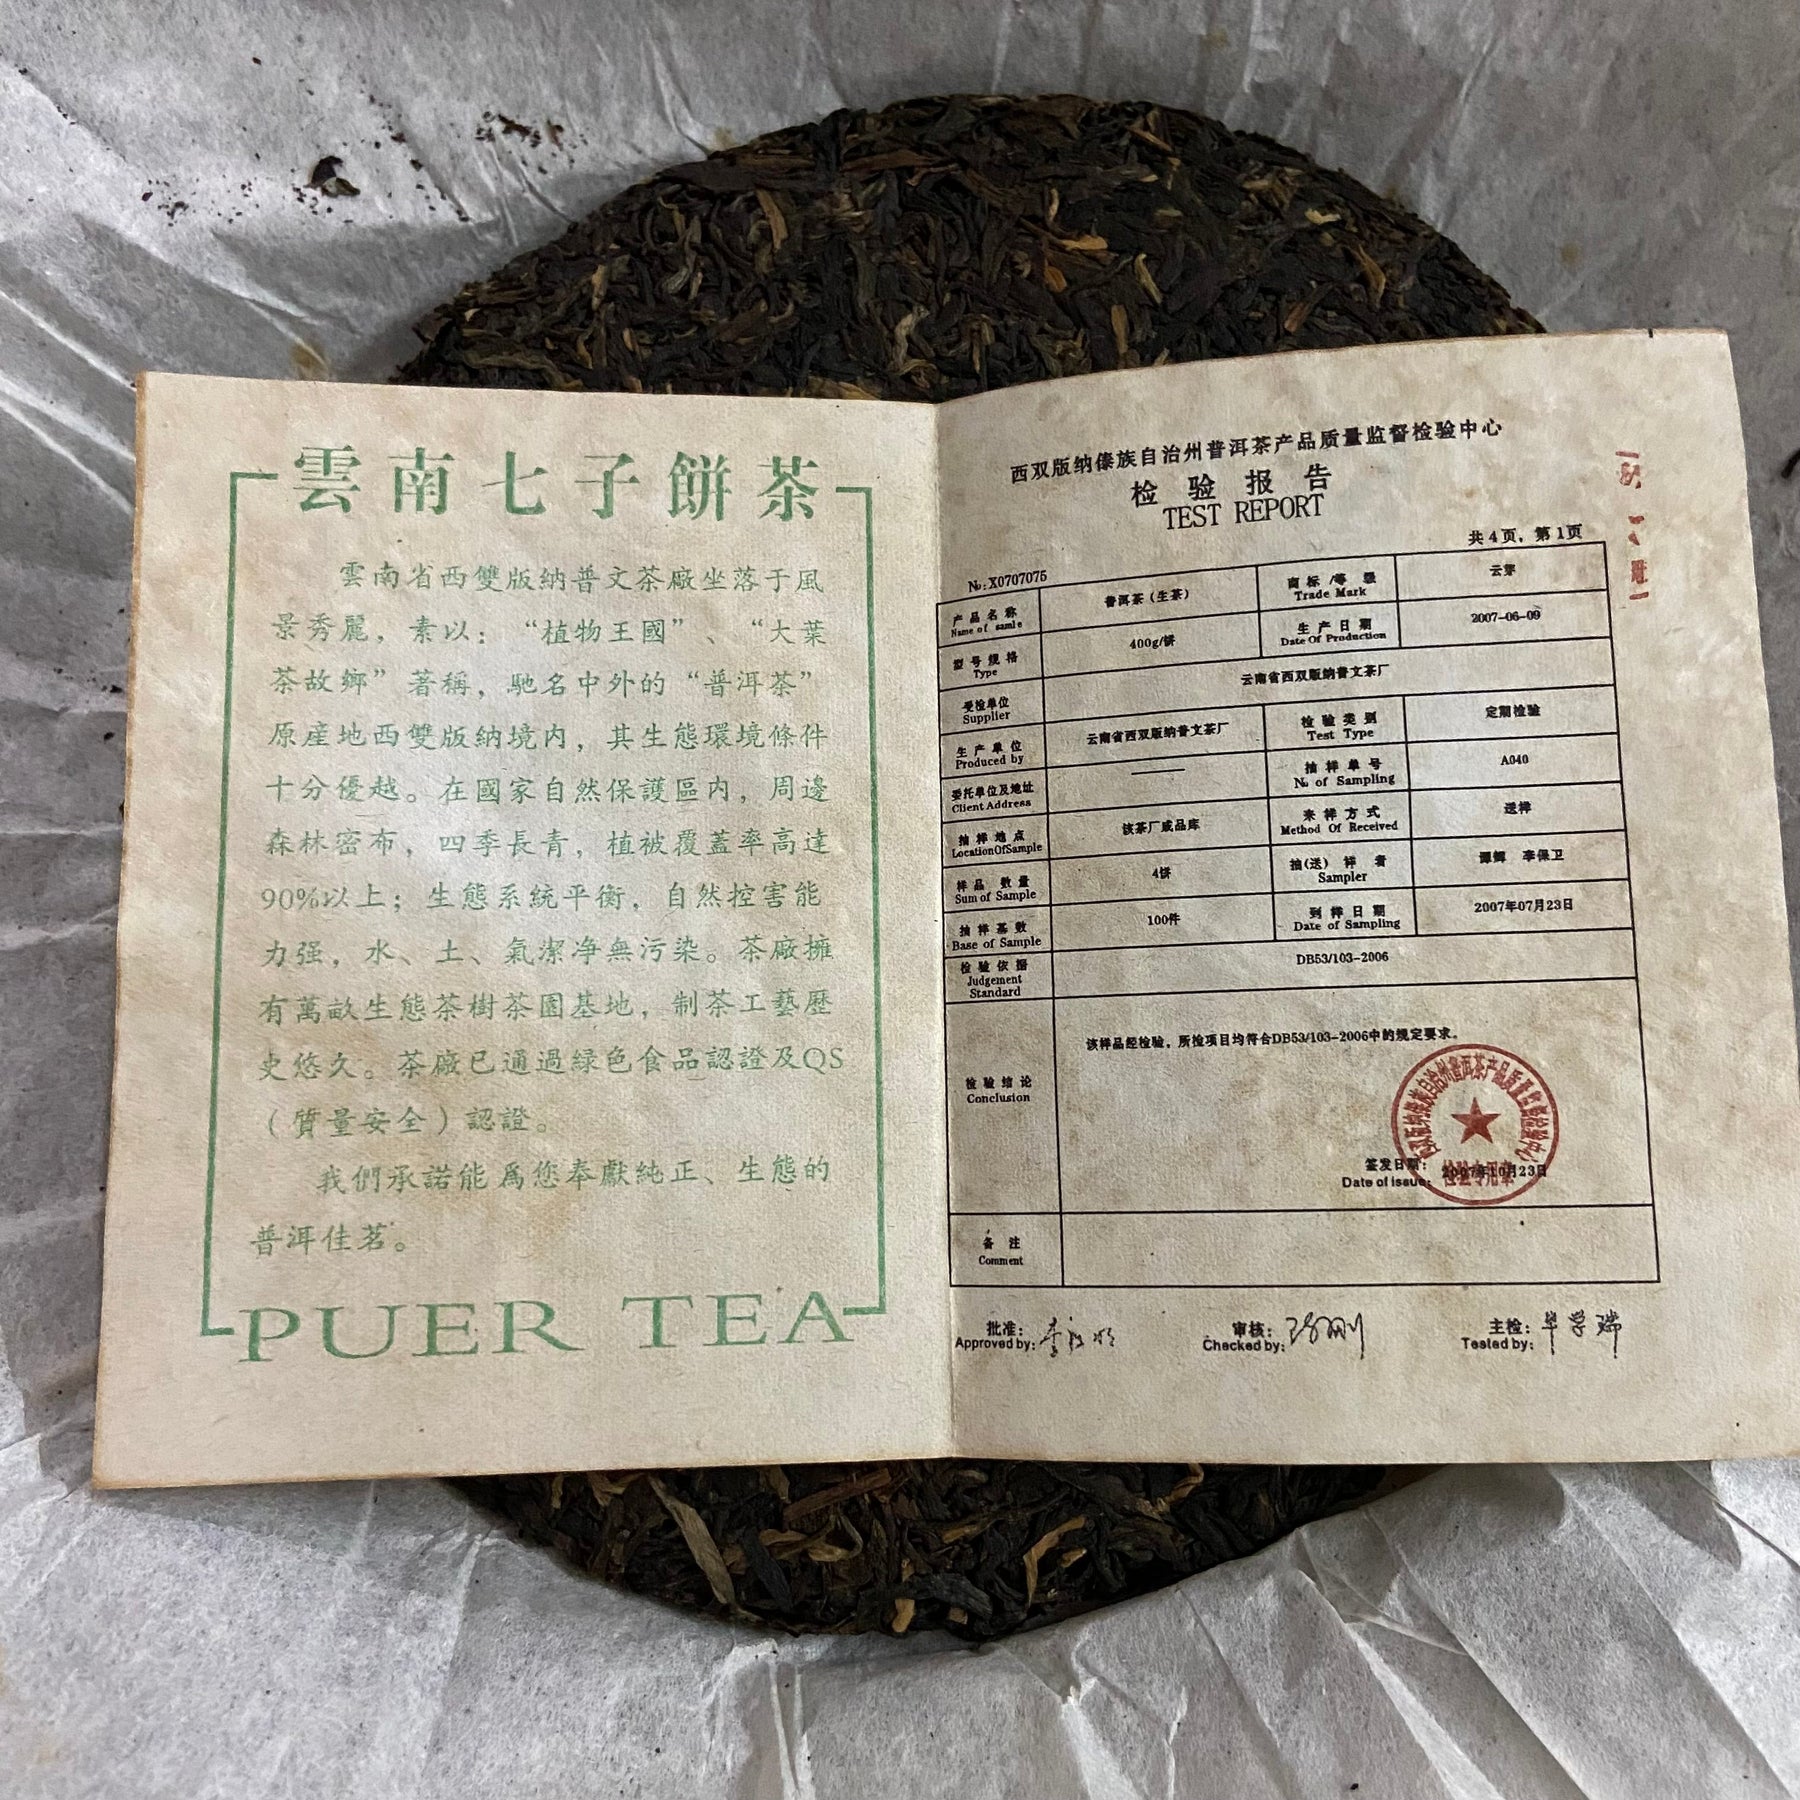 雲南七子餅茶
雲南省西雙版納普文茶廠坐落于風
景秀麗，素以：“植物王國”、“大葉
茶故鄉”著稱，馳名中外的“普洱茶”
原產地西雙版納境内，其生態環境條件
十分優越。在國家自然保護區内，周邊
森林密布，四季長青，植被覆蓋率高達
90%以上；生態系統平衡，自然控害能
力强，水、土、氣潔净無污染。茶廠擁
有萬畝生態茶樹茶園基地，制茶工藝歷
史悠久。茶廠已通過緑色食品認證及QS
（質量安全）認證。
我們承諾能爲您奉獻純正、生態的
普洱佳茗。
PUER TEA
西双版纳傣族自治州普洱茶产品质量监督检验中心
检 验 报 告
TEST REPORT
共4页，第1页
№:X0707075
产品名称 普洱茶（生茶） 商标/等级 云芽
Name of samle Trade Mark
型号规格 400g/饼 生产日期 2007-06-09
Type Date Of Production
受检单位 云南省西双版纳普文茶厂
Supplier
生产单位 云南省西双版纳普文茶厂 检验类别 定期检验
Produced by Test Type
委托单位及地址 —— 抽样单号 A040
Client Address № of Sampling
抽样地点 该茶厂成品库 来样方式 送样
LocationOfSample Method Of Received
样品数量 4饼 抽(送)样者 李保卫
Sum of Sample Sampler
抽样基数 100件 到样日期 2007年07月23日
Base of Sample Date of Sampling
检验依据 DB53/103-2006
Judgement
Standard
该样品经检验，所检项目均符合DB53/103-2006中的规定要求。
检验结论
Conclusion
西双版纳傣族自治州普洱茶产品质量监督检验中心
检验专用章
签发日期： 2007年10月23日
Date of issue:
备注
Comment
批准： 审核： 主检：毕学瑞
Approved by: Checked by: Tested by: